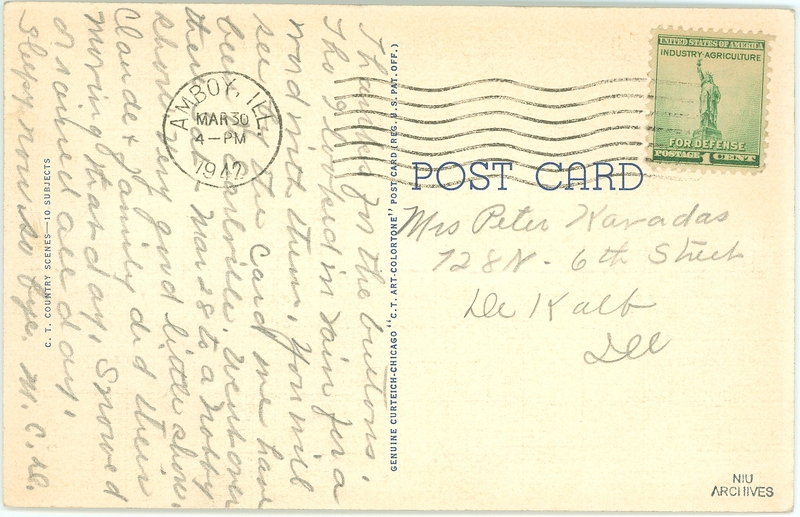 Thanks for the buttons.
Tho I looked in vain for a
word with them. You will
see by the card we have
been Earlville. Went over
there Sat. Mar 28 to a hobby
show. Very good little show.
Claude & family did their
moving that day. Snowed
or rained all day.
Sleepy now so bye. M.C.
C. T. COUNTRY SCENES—10 SUBJECTS
AMBOY, ILL.
MAR 30
4-PM
1942
GENUINE CURTEICH-CHICAGO "C.T. ART-COLORTONE" POST CARD (REG. U.S. PAT. OFF.)
UNITED STATES OF AMERICA
INDUSTRY-AGRICULTURE
FOR DEFENSE
POSTAGE 1 CENT
POST CARD
Mrs Peter Karadas
728 N - 6th Street
De Kalb
Ill
NIU
ARCHIVES